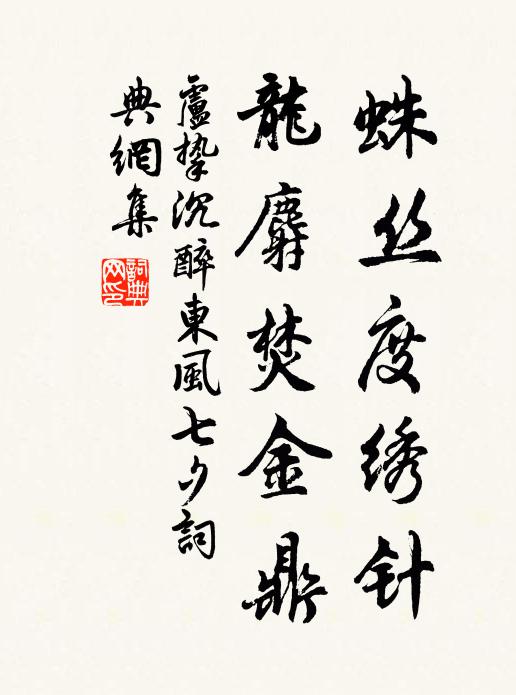 蛛丝度绣针
龍麝焚金鼎
盧摯沉醉東風七夕詞
典網集
詞典网印